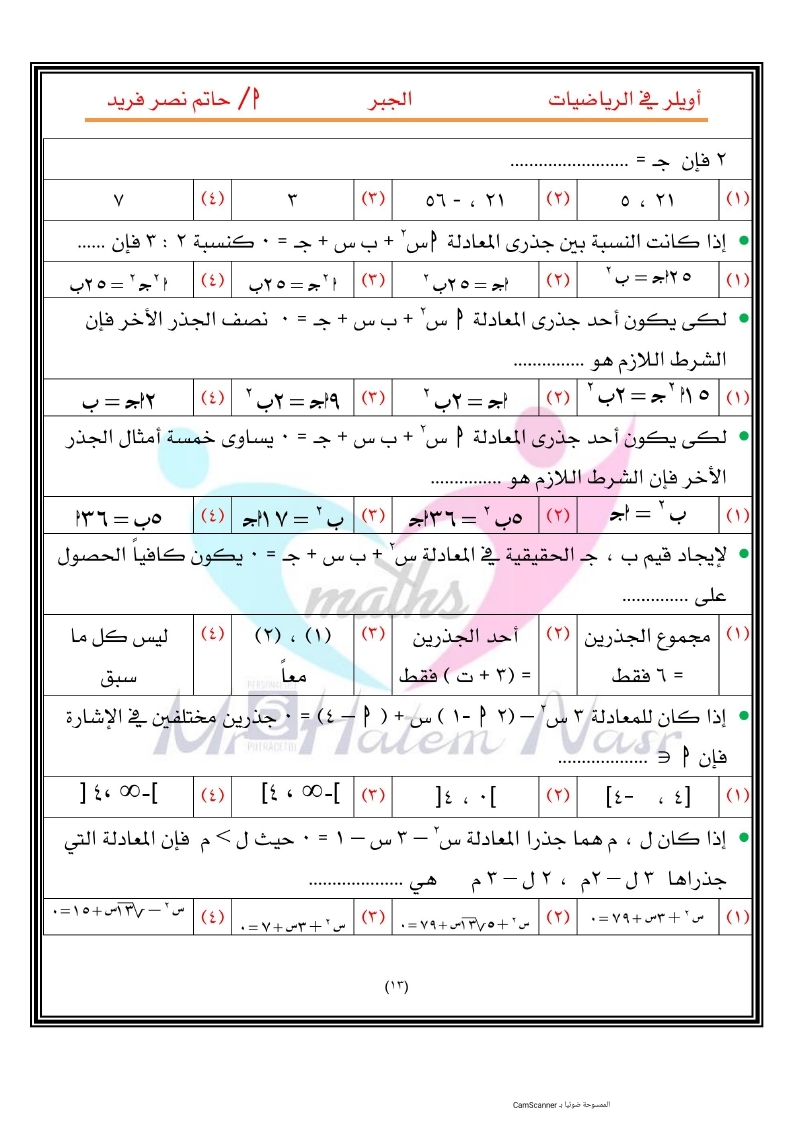 أويلر في الرياضيات الجبر أ/ حاتم نصر فريد
٢ فإن جـ = .........................
(١) ٢١ ، ٥ (٢) ٢١ ، - ٥٦ (٣) ٣ (٤) ٧
● إذا كانت النسبة بين جذرى المعادلة أس٢ + ب س + جـ = ٠ كنسبة ٢ : ٣ فإن ......
(١) ٢٥اجـ = ب٢ (٢) اجـ = ٢٥ب٢ (٣) ا٢جـ = ٢٥ب (٤) ا٢جـ٢ = ٢٥ب
● لكى يكون أحد جذرى المعادلة أ س٢ + ب س + جـ = ٠ نصف الجذر الأخر فإن
الشرط اللازم هو ...............
(١) ١٥ا٢جـ = ٢ب٢ (٢) اجـ = ٢ب٢ (٣) ٩اجـ = ٢ب٢ (٤) ٢اجـ = ب
● لكى يكون أحد جذرى المعادلة أ س٢ + ب س + جـ = ٠ يساوى خمسة أمثال الجذر
الأخر فإن الشرط اللازم هو ...............
(١) ب٢ = اجـ (٢) ٥ب٢ = ٣٦اجـ (٣) ب٢ = ١٧اجـ (٤) ٥ب = ٣٦ا
● لإيجاد قيم ب ، جـ الحقيقية في المعادلة س٢ + ب س + جـ = ٠ يكون كافياً الحصول
على ..............
(١) مجموع الجذرين (٢) أحد الجذرين (٣) (١) ، (٢) (٤) ليس كل ما
= ٦ فقط = (٣ + ت ) فقط معاً سبق
● إذا كان للمعادلة ٣ س٢ – (٢ أ -١ ) س + ( أ – ٤) = ٠ جذرين مختلفين في الإشارة
فإن أ ∈ ...................
(١) [٤ ، -٤] (٢) ]٠ ، ٤[ (٣) ]-∞ ، ٤] (٤) ]-∞ ،٤ [
● إذا كان ل ، م هما جذرا المعادلة س٢ – ٣ س – ١ = ٠ حيث ل > م فإن المعادلة التي
جذراها ٣ ل – ٢م ، ٢ ل – ٣ م هي ....................
(١) س٢ + ٣س + ٧٩ = ٠ (٢) س٢ + ٥√١٣س + ٧٩ = ٠ (٣) س٢ + ٣س + ٧ = ٠ (٤) س٢ – √١٣س + ١٥ = ٠
maths
PERSONAL
Mr Hatem Nasr
PUTRACETOL
(١٣)
الممسوحة ضوئيا بـ CamScanner